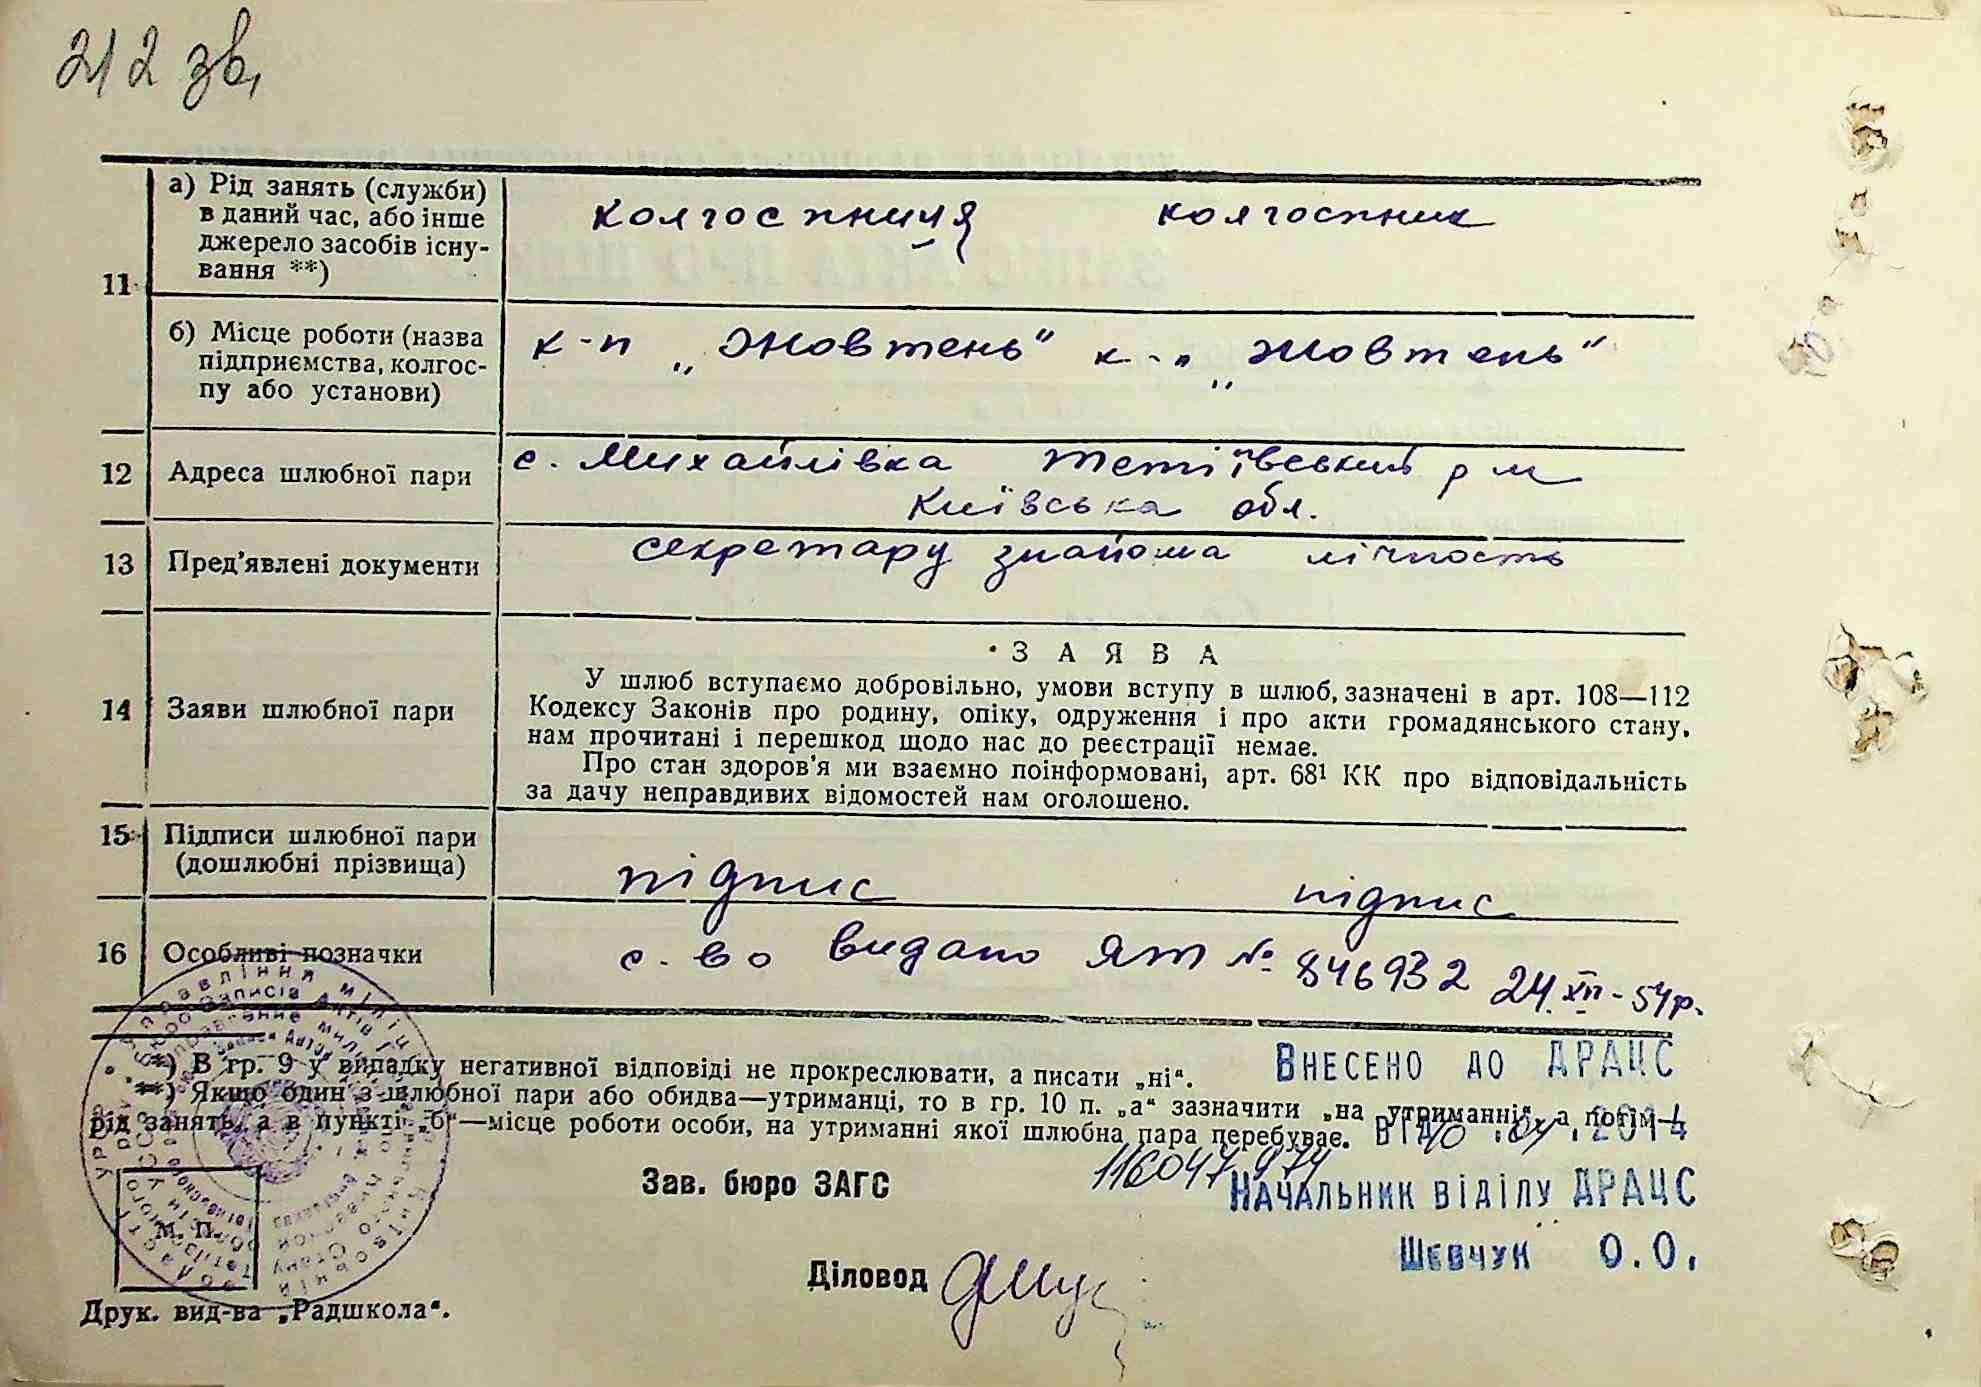 212 зв.
а) Рід занять (служби)
в даний час, або інше
джерело засобів існу-
вання **)
колгоспниця колгоспник
11
б) Місце роботи (назва
підприємства, колгос-
пу або установи)
к-п „Жовтень" к-п „Жовтень"
12 Адреса шлюбної пари
с. Михайлівка Тетіївський р-н
Київська обл.
13 Пред'явлені документи
секретару знайома лічность
14 Заяви шлюбної пари
ЗАЯВА
У шлюб вступаємо добровільно, умови вступу в шлюб, зазначені в арт. 108—112
Кодексу Законів про родину, опіку, одруження і про акти громадянського стану,
нам прочитані і перешкод щодо нас до реєстрації немає.
Про стан здоров'я ми взаємно поінформовані, арт. 68¹ КК про відповідальність
за дачу неправдивих відомостей нам оголошено.
15 Підписи шлюбної пари
(дошлюбні прізвища)
підпис підпис
16 Особливі позначки
с-во видано ЯТ № 846932 24.XII-54р.
*) В гр. 9 у випадку негативної відповіді не прокреслювати, а писати „ні".
**) Якщо один з шлюбної пари або обидва—утриманці, то в гр. 10 п. „а" зазначити „на утриманні", а потім—
рід занять, а в пункті „б"—місце роботи особи, на утриманні якої шлюбна пара перебуває.
Внесено до ДРАЦС
від 2014
116047974
Начальник відділу ДРАЦС
Шевчук О.О.
Зав. бюро ЗАГС
М. П.
Діловод
Друк. вид-ва „Радшкола".